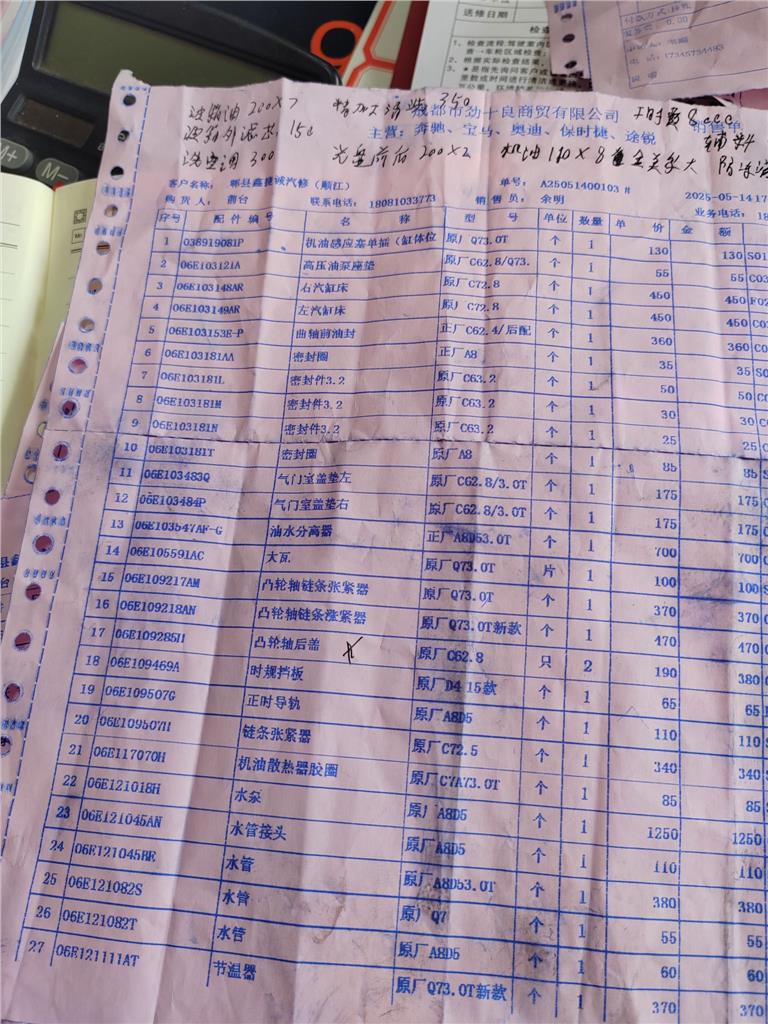 送修日期
付款方式:
0.00
电话: 17345734493
M+
M-
波箱油 200×7 350
150 工时费 8000
都市劲十良商贸有限公司 销售单
主营: 奔驰、宝马、奥迪、保时捷、途锐 辅料
300 光盘前后 200×2 机油 110×8
客户名称: 郫县鑫捷诚汽修（顺江） 单号: A25051400103 # 2025-05-14 17
购货人: 前台 联系电话: 18081033773 销售员: 余明 业务电话: 18
序号 配件编号 名称 型号 单位 数量 单价 金额
1 038919081P 机油感应塞单插（缸体位 原厂Q73.0T 个 1 130 130 S01
2 06E103121A 高压油泵座垫 原厂C62.8/Q73. 个 1 55 55 C03
3 06E103148AR 右汽缸床 原厂C72.8 个 1 450 450 F02
4 06E103149AR 左汽缸床 原厂C72.8 个 1 450 450 C0
5 06E103153E-P 曲轴前油封 正厂C62.4/后配 个 1 360 360 C0
6 06E103181AA 密封圈 正厂A8 个 1 35 35 S0
7 06E103181L 密封件3.2 原厂C63.2 个 1 50 50 C
8 06E103181M 密封件3.2 原厂C63.2 个 1 30 30 C
9 06E103181N 密封件3.2 原厂C63.2 个 1 25 25
10 06E103181T 密封圈 原厂A8 个 1 85 85
11 06E103483Q 气门室盖垫左 原厂C62.8/3.0T 个 1 175 175
12 06E103484P 气门室盖垫右 原厂C62.8/3.0T 个 1 175 175
13 06E103547AF-G 油水分离器 正厂A8D53.0T 个 1 700 700
14 06E105591AC 大瓦 原厂Q73.0T 片 1 100 100
15 06E109217AM 凸轮轴链条张紧器 原厂Q73.0T 个 1 370 370
16 06E109218AN 凸轮轴链条涨紧器 原厂Q73.0T新款 个 1 470 470
17 06E109285H 凸轮轴后盖 原厂C62.8 只 2 190 380
18 06E109469A 时规挡板 原厂D4 15款 个 1 65 65
19 06E109507G 正时导轨 原厂A8D5 个 1 110 110
20 06E109507H 链条张紧器 原厂C72.5 个 1 340 340
21 06E117070H 机油散热器胶圈 原厂C7A73.0T 个 1 85 85
22 06E121018H 水泵 原厂A8D5 个 1 1250 1250
23 06E121045AN 水管接头 原厂A8D5 个 1 110 110
24 06E121045BE 水管 原厂A8D53.0T 个 1 380 380
25 06E121082S 水管 原厂Q7 个 1 55 55
26 06E121082T 水管 原厂A8D5 个 1 60 60
27 06E121111AT 节温器 原厂Q73.0T新款 个 1 370 370